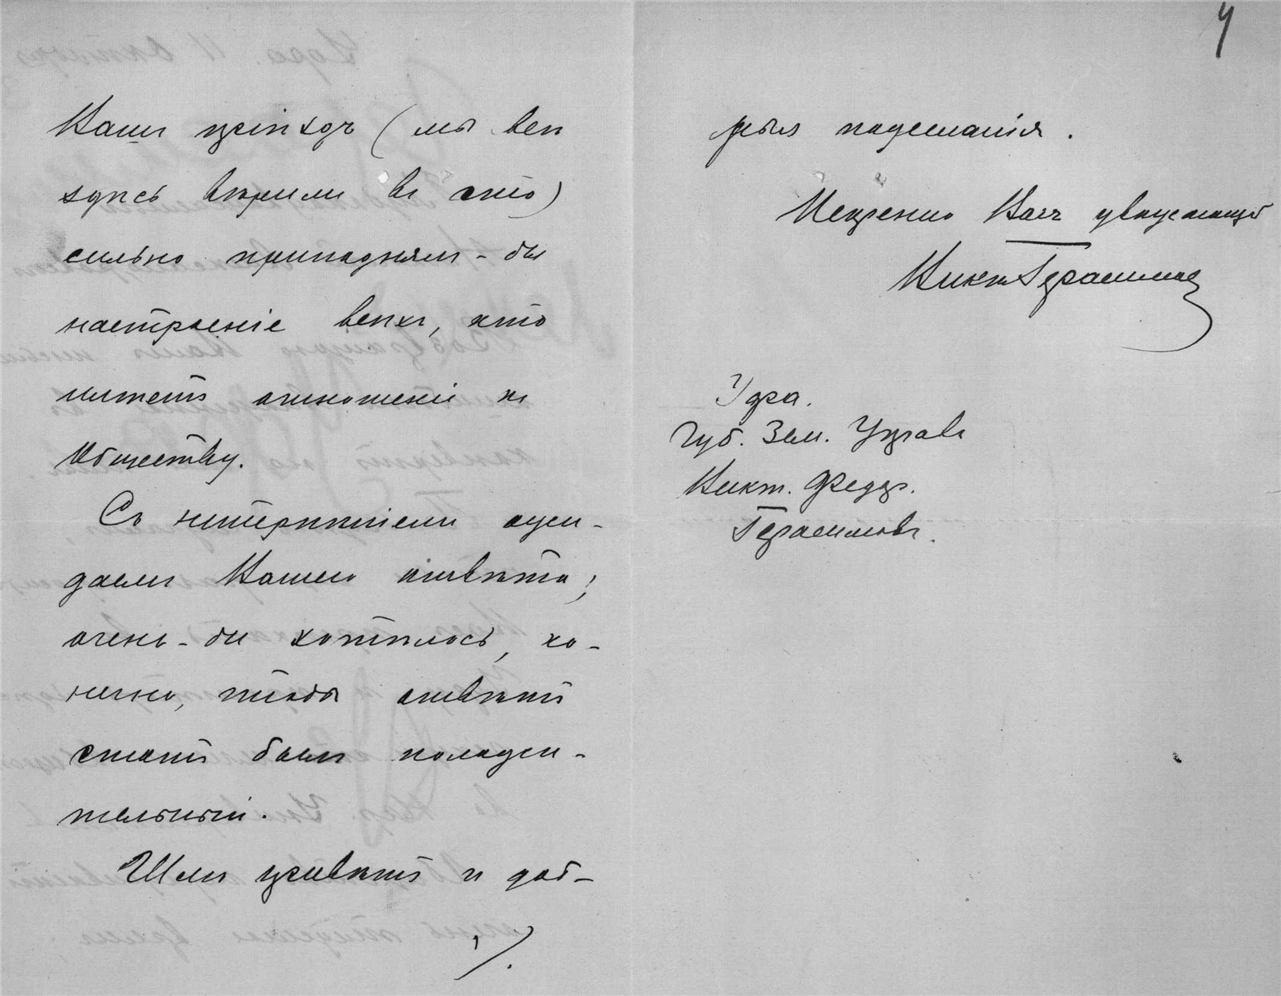 4
Вашъ пріѣздъ (мы всѣ
здѣсь вѣримъ въ это)
сильно приподнялъ-бы
настроеніе всѣхъ, кто
имѣетъ отношеніе къ
Обществу.
Съ нетерпѣніемъ ожи-
даемъ Вашего отвѣта;
очень-бы хотѣлось, ко-
нечно, чтобы отвѣтъ
этотъ былъ положи-
тельный.
Шлю привѣтъ и доб-
рыя пожеланія.
Искренно Васъ уважающій
Викт. Герасимов
Уфа.
Губ. Зем. Управа
Викт. Федор.
Герасимовъ.